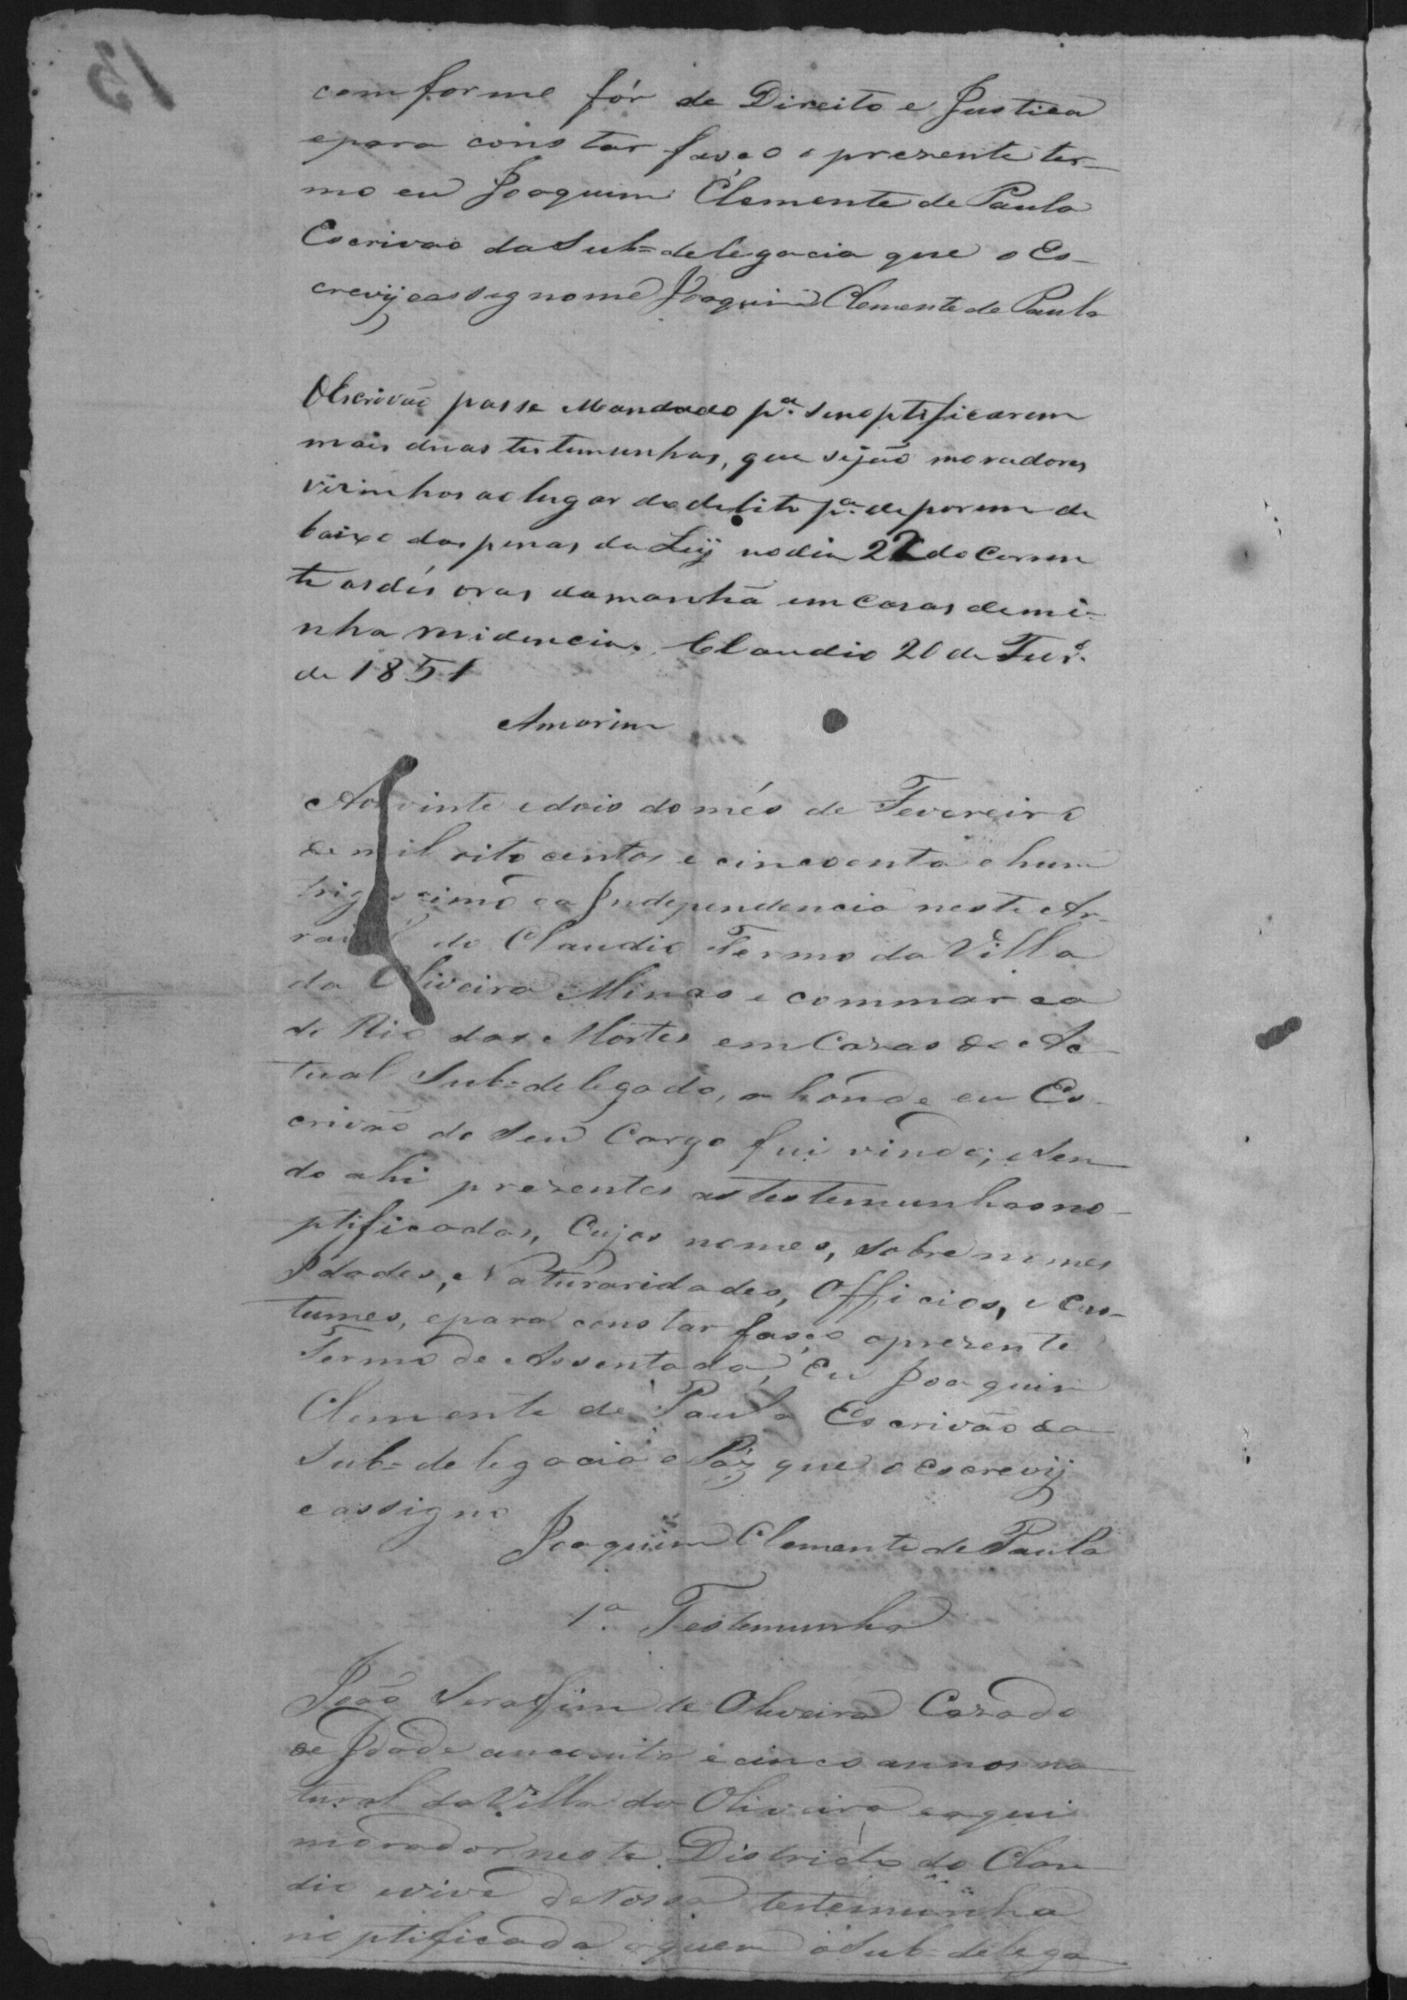 comforme fór de Direito e Justica
epara constar fasço o prezente ter-
mo eu Joaquim Clemente de Paula
Escrivao da Sub=delegacia que o Es-
crevij eassignome Joaquim Clemente de Paula
OEscrivaõ passe Mandado pª. serem noptificarem
mais duas testemunhas, que sejaõ moradores
visinhos ao lugar do delito pª. deporem de
baixo das penas da Leÿ nodia 22 do Corren
te asdés oras damanhã em Casas de mi-
nha residencia. Claudio 20 de Fevrº.
de 1851
Amorim
Aos vinte edois do més de Fevereiro
de mil oito centos e cincoenta ehum
trigescimo da Independencia neste Ar-
raial do Claudio Termo da Villa
da Oliveira Minas e commarca
do Rio das Mortes em Cazas do Ac-
tual Sub=delegado, a hónde eu Es-
crivaõ do Seu Cargo fui vindo; eSen
do ahi prezentes as testemunhas no-
ptificadas, Cujos nomes, sobre nomes
Idades, e Naturaridades, Officios, e Cus-
tumes, epara constar fasço oprezente
Termo de Assentada, Eu Joaquim
Clemente de Paula Escrivão da
Sub=delegacia e Páz que o escrevij
eassigno
Joaquim Clemente de Paula
1ª. Testemunha
João Serafim de Oliveira Cazado
de Idade cincoenta e cinco annos na
tural da Villa da Oliveira eaqui
morador neste Districto do Clau
dio evive de testemunha
noptificada aquem oSub=delega